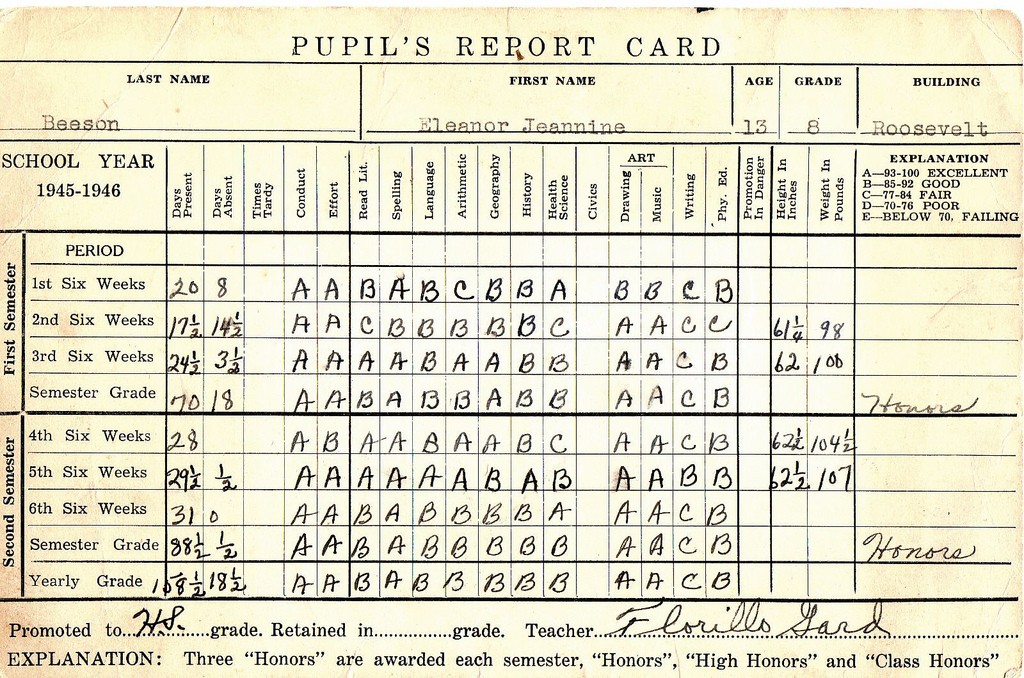 PUPIL'S REPORT CARD
LAST NAME FIRST NAME AGE GRADE BUILDING
Beeson Eleanor Jeannine 13 8 Roosevelt
SCHOOL YEAR
1945-1946
Days Present
Days Absent
Times Tardy
Conduct
Effort
Read Lit.
Spelling
Language
Arithmetic
Geography
History
Health Science
Civics
ART
Drawing
Music
Writing
Phy. Ed.
Promotion In Danger
Height In Inches
Weight In Pounds
EXPLANATION
A—93-100 EXCELLENT
B—85-92 GOOD
C—77-84 FAIR
D—70-76 POOR
E—BELOW 70, FAILING
First Semester
PERIOD
1st Six Weeks 20 8 A A B A B C B B A B B C B
2nd Six Weeks 17½ 14½ A A C B B B B B C A A C C 61¼ 98
3rd Six Weeks 24½ 3½ A A A A B A A B B A A C B 62 100
Semester Grade 70 18 A A B A B B A B B A A C B Honors
Second Semester
4th Six Weeks 28 A B A A B A A B C A A C B 62½ 104½
5th Six Weeks 29½ ½ A A A A A A B A B A A B B 62½ 107
6th Six Weeks 31 0 A A B A B B B B A A A C B
Semester Grade 88½ ½ A A B A B B B B B A A C B Honors
Yearly Grade 158½ 18½ A A B A B B B B B A A C B
Promoted to...H.S.......grade. Retained in..............grade. Teacher...Florillo Gard
EXPLANATION: Three "Honors" are awarded each semester, "Honors", "High Honors" and "Class Honors"